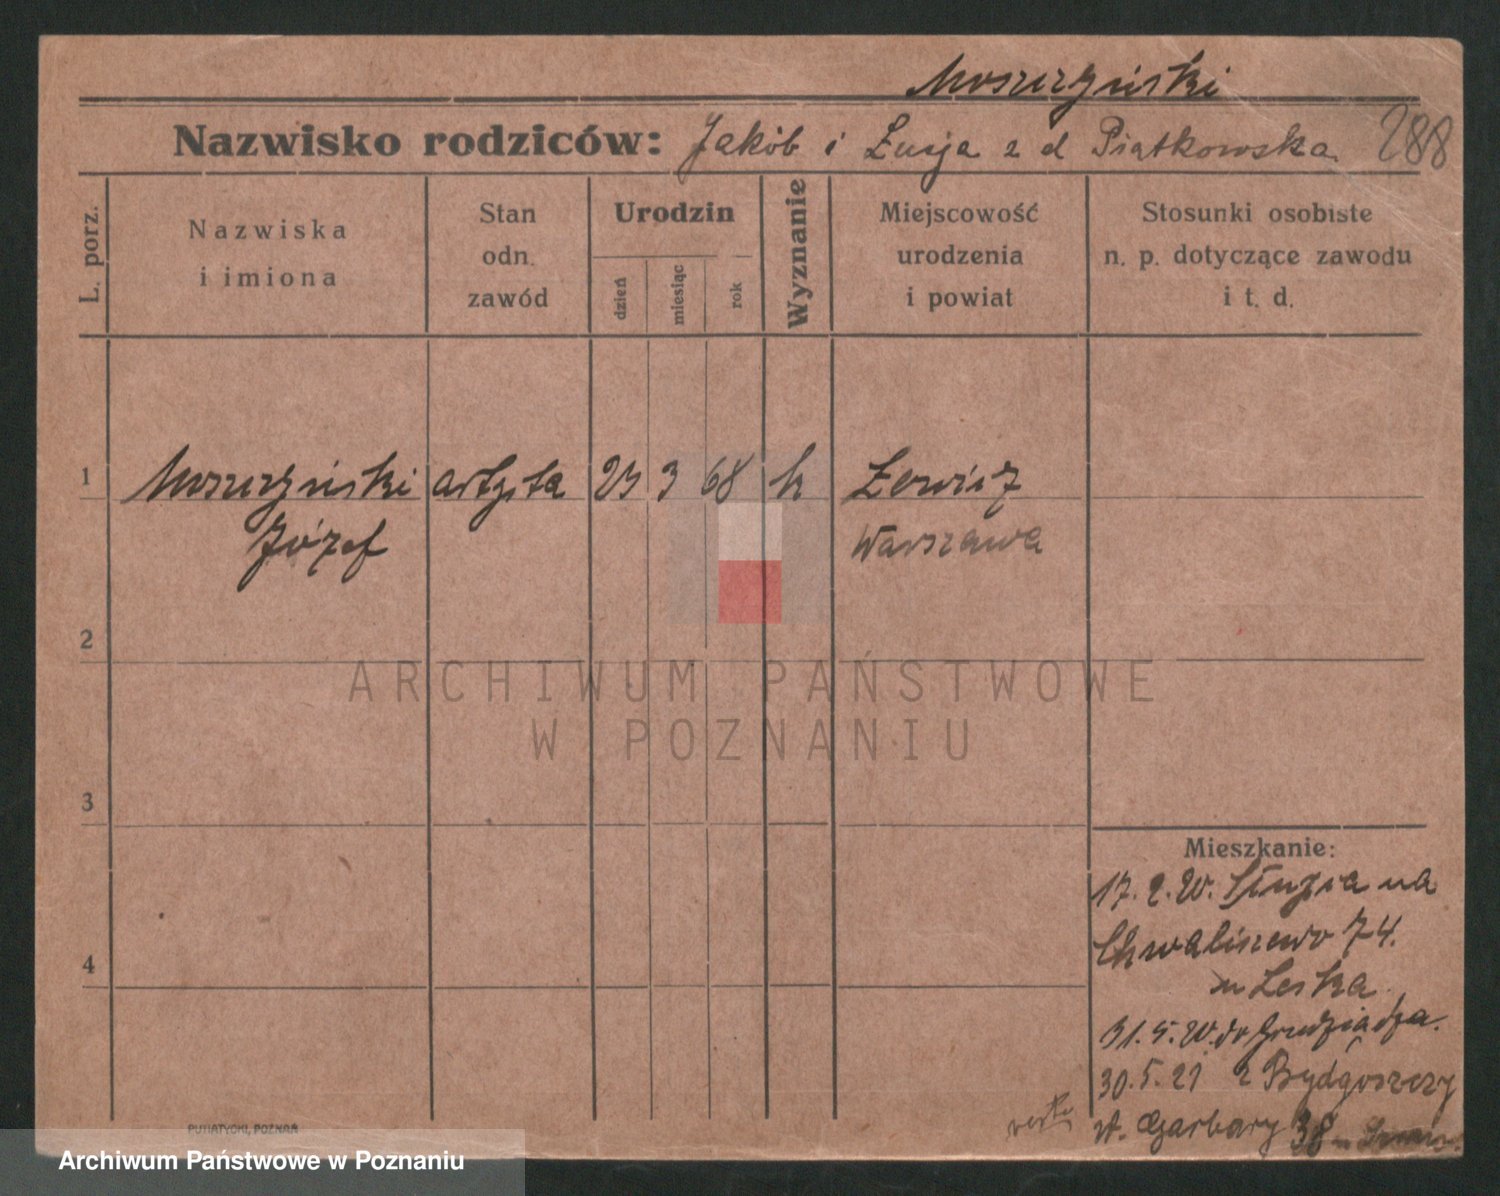 Moszczyński
Nazwisko rodziców: Jakób i Łucja z d Piątkowska 288
L. porz.
Nazwiska
i imiona
Stan
odn.
zawód
Urodzin
dzień
miesiąc
rok
Wyznanie
Miejscowość
urodzenia
i powiat
Stosunki osobiste
n. p. dotyczące zawodu
i t. d.
1 Moszczyński artysta 23 3 68 k Łowicz
Józef Warszawa
2
3
4
Mieszkanie:
17.2.20. Słupia na
Chwaliszewo 74.
u Leska
31.5.20. do Grudziądza.
30.5.21 z Bydgoszczy
st. Garbary 38
verte
PUTIATYCKI, POZNAŃ
ARCHIWUM PAŃSTWOWE
W POZNANIU
Archiwum Państwowe w Poznaniu